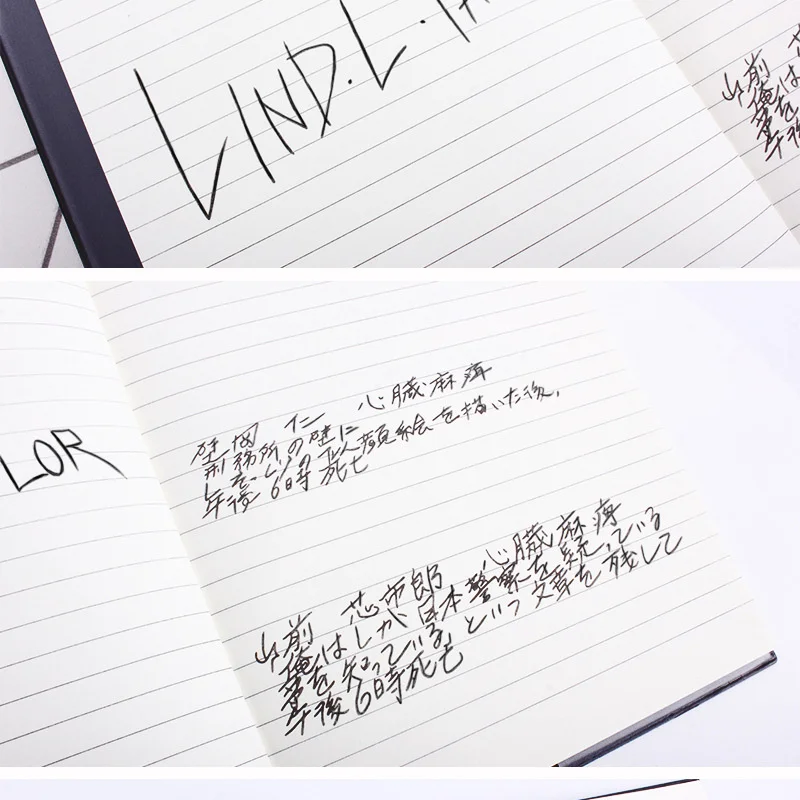 LIND.L.
山前
俺は
事を
午後
LOR
心臓麻痺
刑務所の壁に
顔絵を描いた後,
午後6時死亡
山前 芯市郎 心臓麻痺
俺はLが日本警察を疑っている
事を知っているという文章を残して
午後6時死亡